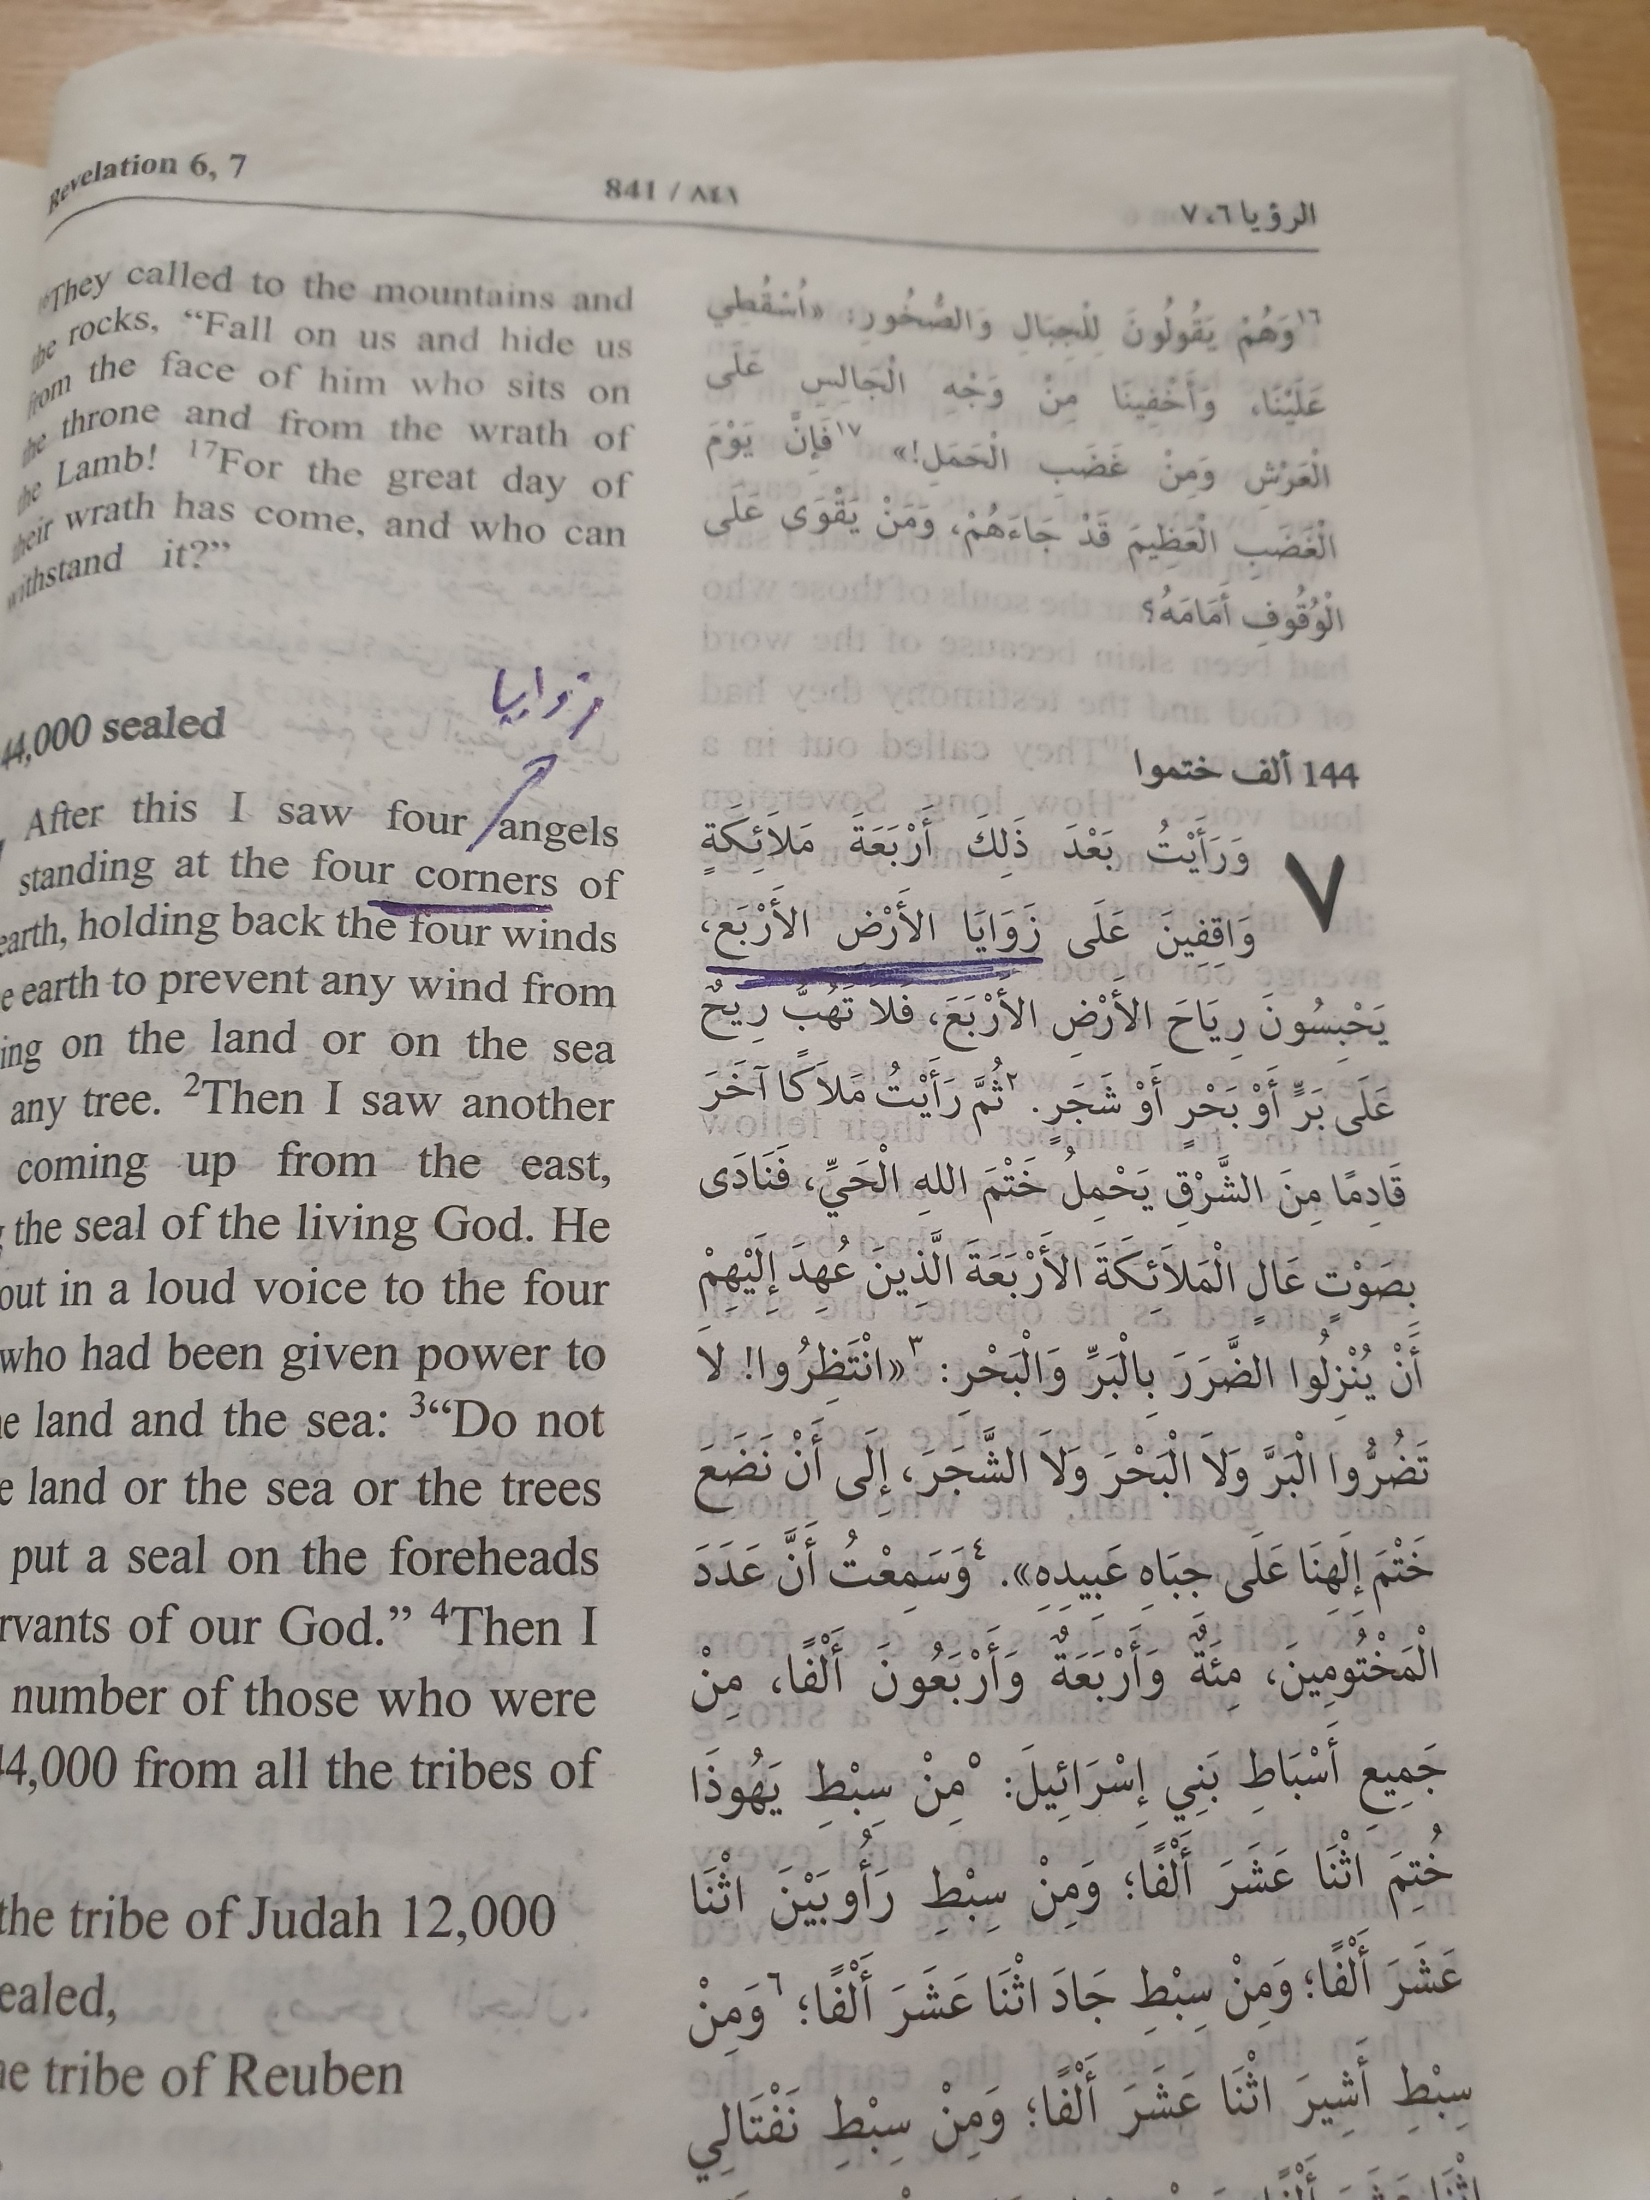 Revelation 6, 7
841 / ٨٤١
الرؤيا ٦، ٧
They called to the mountains and
the rocks, “Fall on us and hide us
from the face of him who sits on
the throne and from the wrath of
the Lamb! ¹⁷For the great day of
their wrath has come, and who can
withstand it?”
زوايا
44,000 sealed
After this I saw four angels
standing at the four corners of
earth, holding back the four winds
e earth to prevent any wind from
ing on the land or on the sea
any tree. ²Then I saw another
coming up from the east,
the seal of the living God. He
out in a loud voice to the four
who had been given power to
e land and the sea: ³“Do not
e land or the sea or the trees
put a seal on the foreheads
rvants of our God.” ⁴Then I
number of those who were
44,000 from all the tribes of
the tribe of Judah 12,000
ealed,
e tribe of Reuben
¹⁶وَهُمْ يَقُولُونَ لِلْجِبَالِ وَالصُّخُورِ: «اُسْقُطِي
عَلَيْنَا، وَأَخْفِينَا مِنْ وَجْهِ الْجَالِسِ عَلَى
الْعَرْشِ وَمِنْ غَضَبِ الْحَمَلِ!» ¹⁷فَإِنَّ يَوْمَ
الْغَضَبِ الْعَظِيمَ قَدْ جَاءَهُمْ، وَمَنْ يَقْوَى عَلَى
الْوُقُوفِ أَمَامَهُ؟
144 ألف ختموا
٧ وَرَأَيْتُ بَعْدَ ذَلِكَ أَرْبَعَةَ مَلاَئِكَةٍ
وَاقِفِينَ عَلَى زَوَايَا الأَرْضِ الأَرْبَعِ،
يَحْبِسُونَ رِيَاحَ الأَرْضِ الأَرْبَعَ، فَلاَ تَهُبُّ رِيحٌ
عَلَى بَرٍّ أَوْ بَحْرٍ أَوْ شَجَرٍ. ٢ثُمَّ رَأَيْتُ مَلاَكًا آخَرَ
قَادِمًا مِنَ الشَّرْقِ يَحْمِلُ خَتْمَ اللهِ الْحَيِّ، فَنَادَى
بِصَوْتٍ عَالٍ الْمَلاَئِكَةَ الأَرْبَعَةَ الَّذِينَ عُهِدَ إِلَيْهِمْ
أَنْ يُنْزِلُوا الضَّرَرَ بِالْبَرِّ وَالْبَحْرِ: ٣«انْتَظِرُوا! لاَ
تَضُرُّوا الْبَرَّ وَلاَ الْبَحْرَ وَلاَ الشَّجَرَ، إِلَى أَنْ نَضَعَ
خَتْمَ إِلَهِنَا عَلَى جِبَاهِ عَبِيدِهِ». ٤وَسَمِعْتُ أَنَّ عَدَدَ
الْمَخْتُومِينَ، مِئَةٌ وَأَرْبَعَةٌ وَأَرْبَعُونَ أَلْفًا، مِنْ
جَمِيعِ أَسْبَاطِ بَنِي إِسْرَائِيلَ: ٥مِنْ سِبْطِ يَهُوذَا
خُتِمَ اثْنَا عَشَرَ أَلْفًا؛ وَمِنْ سِبْطِ رَأُوبَيْنَ اثْنَا
عَشَرَ أَلْفًا؛ وَمِنْ سِبْطِ جَادَ اثْنَا عَشَرَ أَلْفًا؛ ٦وَمِنْ
سِبْطِ أَشِيرَ اثْنَا عَشَرَ أَلْفًا؛ وَمِنْ سِبْطِ نَفْتَالِي